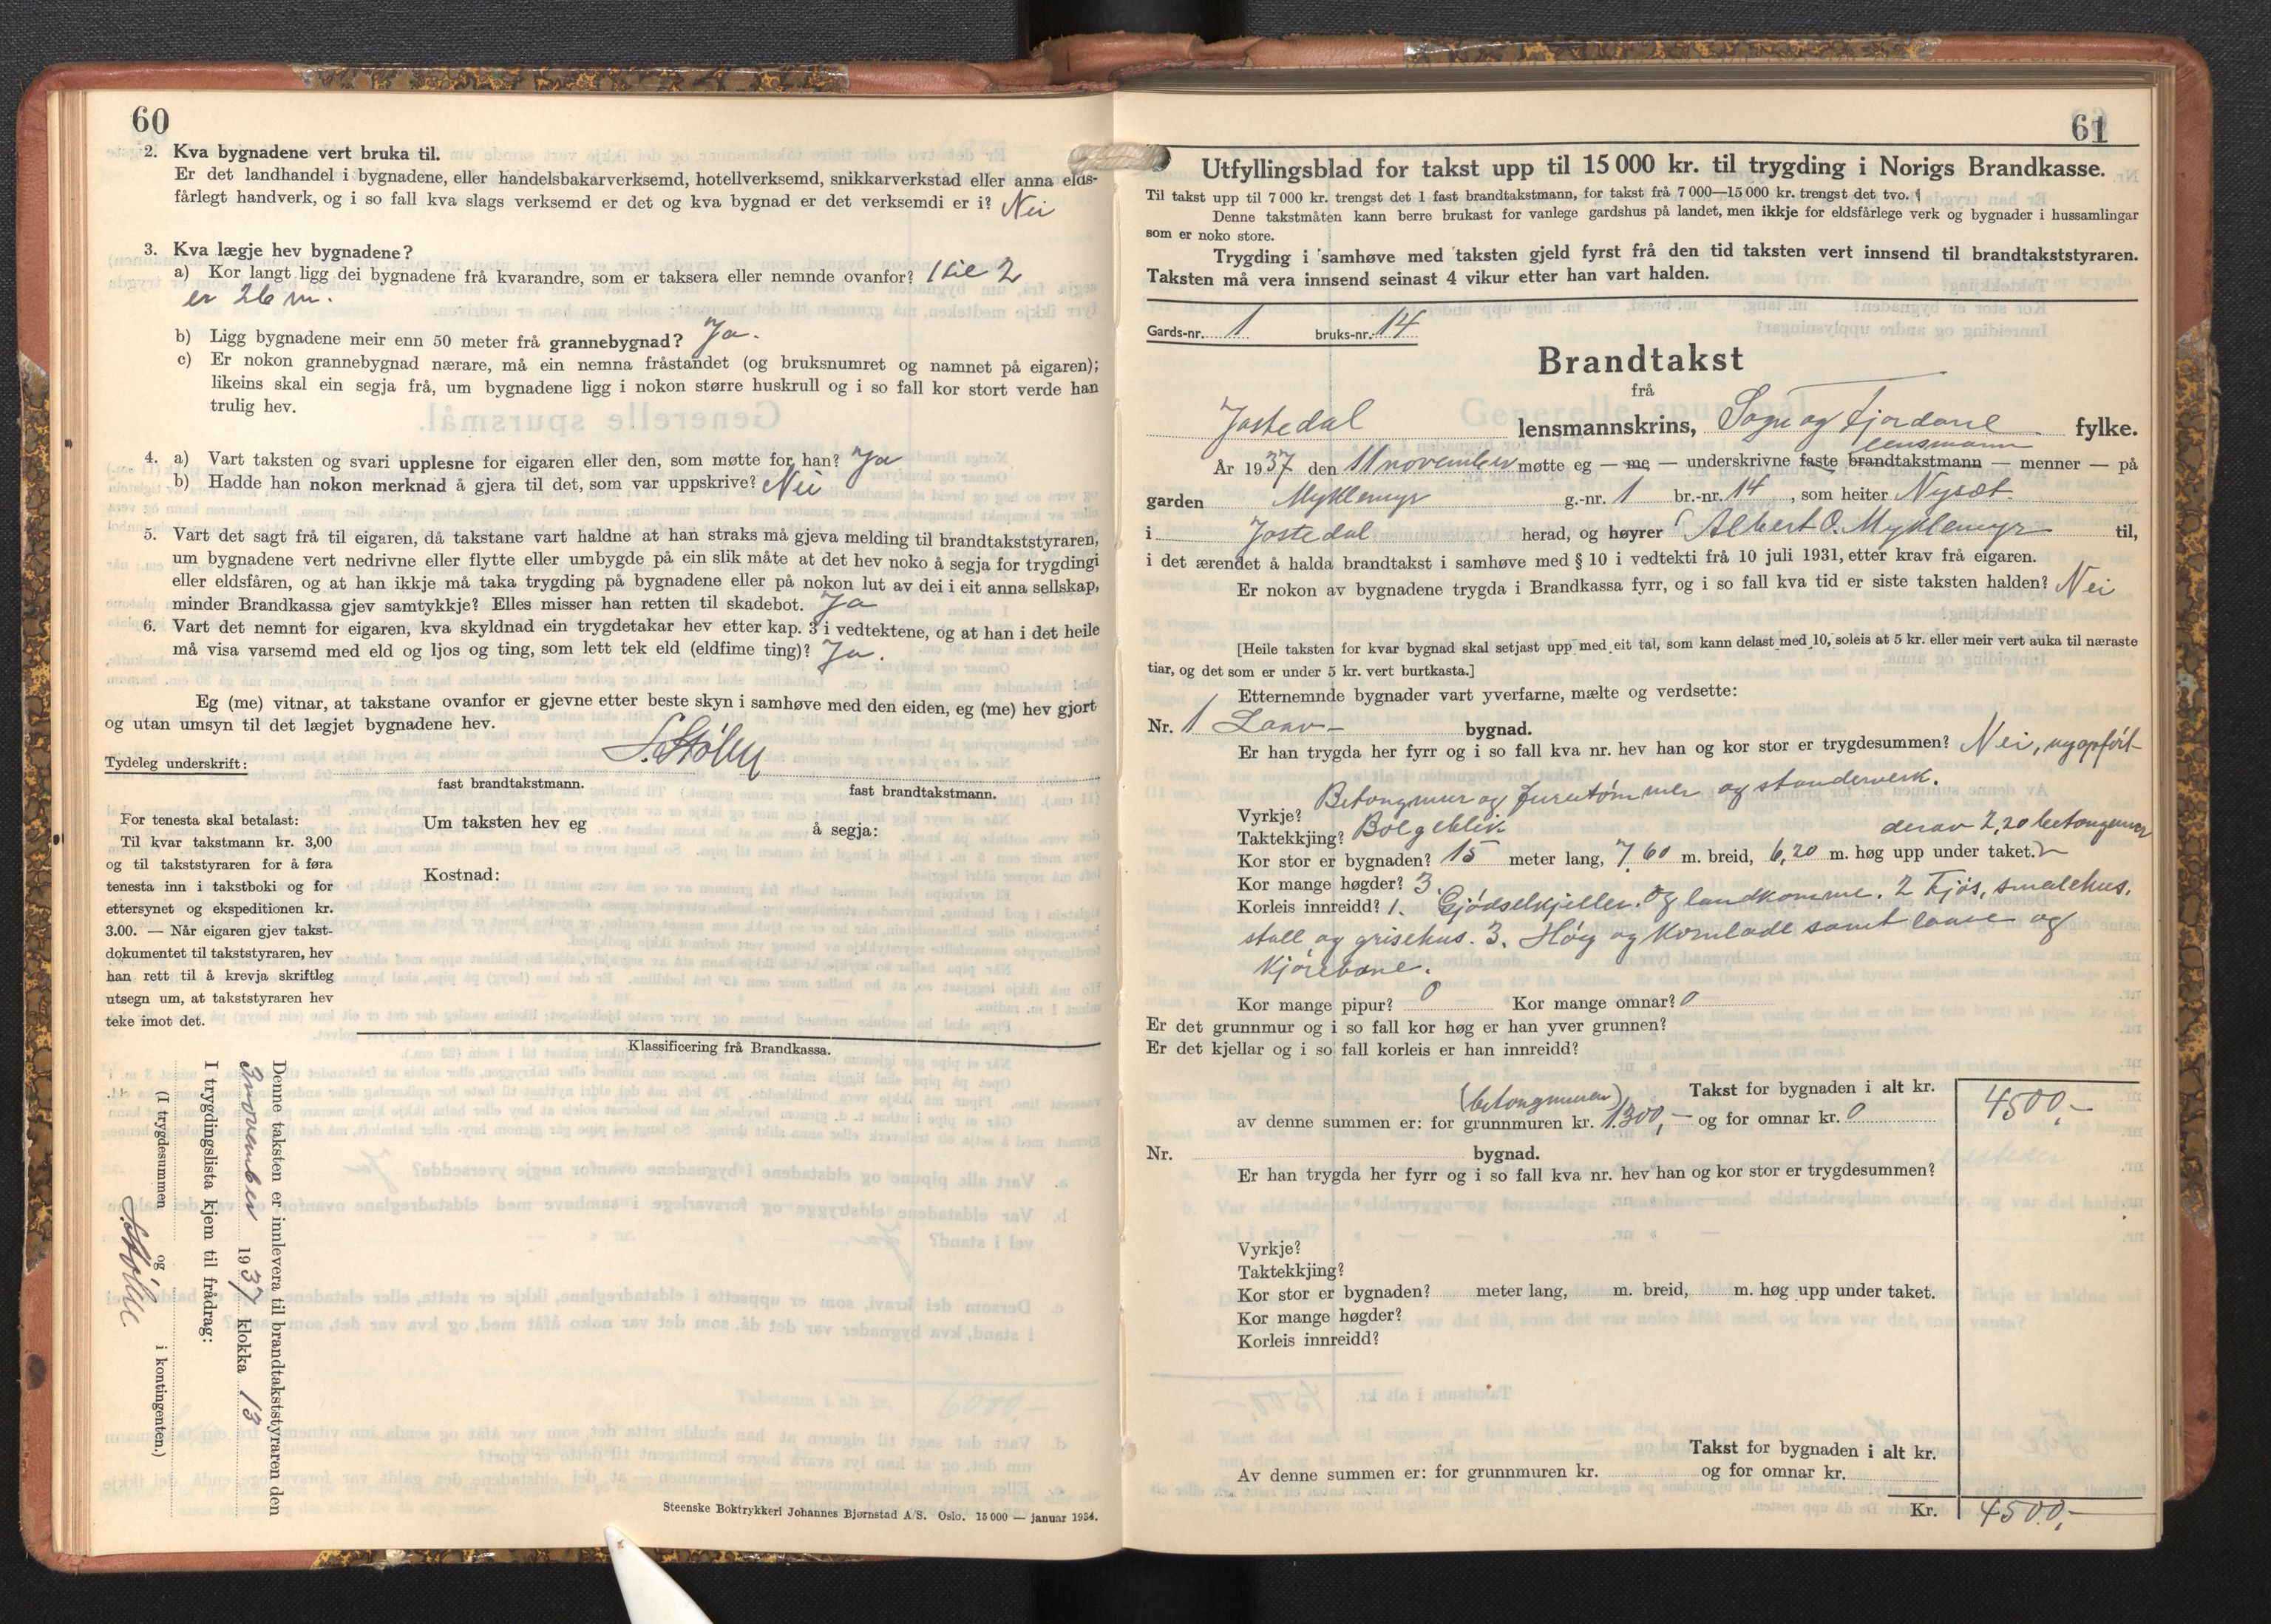 60
2. Kva bygnadene vert bruka til.
Er det landhandel i bygnadene, eller handelsbakarverksemd, hotellverksemd, snikkarverkstad eller anna elds-
fårlegt handverk, og i so fall kva slags verksemd er det og kva bygnad er det verksemdi er i? Nei
3. Kva lægje hev bygnadene?
a) Kor langt ligg dei bygnadene frå kvarandre, som er taksera eller nemnde ovanfor? 1 til 2
er 26 m.
b) Ligg bygnadene meir enn 50 meter frå grannebygnad? Ja.
c) Er nokon grannebygnad nærare, må ein nemna fråstandet (og bruksnumret og namnet på eigaren);
likeins skal ein segja frå, um bygnadene ligg i nokon større huskrull og i so fall kor stort verde han
trulig hev.
4. a) Vart taksten og svari upplesne for eigaren eller den, som møtte for han? Ja
b) Hadde han nokon merknad å gjera til det, som var uppskrive? Nei
5. Vart det sagt frå til eigaren, då takstane vart haldne at han straks må gjeva melding til brandtakststyraren,
um bygnadene vert nedrivne eller flytte eller umbygde på ein slik måte at det hev noko å segja for trygdingi
eller eldsfåren, og at han ikkje må taka trygding på bygnadene eller på nokon lut av dei i eit anna sellskap,
minder Brandkassa gjev samtykkje? Elles misser han retten til skadebot. Ja
6. Vart det nemnt for eigaren, kva skyldnad ein trygdetakar hev etter kap. 3 i vedtektene, og at han i det heile
må visa varsemd med eld og ljos og ting, som lett tek eld (eldfime ting)? Ja.
Eg (me) vitnar, at takstane ovanfor er gjevne etter beste skyn i samhøve med den eiden, eg (me) hev gjort
og utan umsyn til det lægjet bygnadene hev.
Tydeleg underskrift: S. Støley
fast brandtakstmann. fast brandtakstmann.
For tenesta skal betalast:
Til kvar takstmann kr. 3,00
og til takststyraren for å føra
tenesta inn i takstboki og for
ettersynet og ekspeditionen kr.
3.00. — Når eigaren gjev takst-
dokumentet til takststyraren, hev
han rett til å krevja skriftleg
utsegn um, at takststyraren hev
teke imot det.
Um taksten hev eg å segja:
Kostnad:
Klassificering frå Brandkassa.
Denne taksten er innlevera til brandtakststyraren den
november 1937 klokka 13
I trygdingslista kjem til frådrag:
(I trygdesummen og i kontingenten.)
Steenske Boktrykkeri Johannes Bjørnstad A/S. Oslo. 15 000 — januar 1934.
61
Utfyllingsblad for takst upp til 15 000 kr. til trygding i Norigs Brandkasse.
Til takst upp til 7 000 kr. trengst det 1 fast brandtakstmann, for takst frå 7 000—15 000 kr. trengst det tvo.
Denne takstmåten kann berre brukast for vanlege gardshus på landet, men ikkje for eldsfårlege verk og bygnader i hussamlingar
som er noko store.
Trygding i samhøve med taksten gjeld fyrst frå den tid taksten vert innsend til brandtakststyraren.
Taksten må vera innsend seinast 4 vikur etter han vart halden.
Gards-nr. 1 bruks-nr. 14
Brandtakst
frå
Jostedal lensmannskrins, Sogn og Fjordane fylke.
lensmann
År 1937 den 11 november møtte eg — me — underskrivne faste brandtakstmann — menner — på
garden Myklemyr g.-nr. 1 br.-nr. 14, som heiter Nysæt
i Jostedal herad, og høyrer Albert O. Myklemyr til,
i det ærendet å halda brandtakst i samhøve med § 10 i vedtekti frå 10 juli 1931, etter krav frå eigaren.
Er nokon av bygnadene trygda i Brandkassa fyrr, og i so fall kva tid er siste taksten halden? Nei
[Heile taksten for kvar bygnad skal setjast upp med eit tal, som kann delast med 10, soleis at 5 kr. eller meir vert auka til næraste
tiar, og det som er under 5 kr. vert burtkasta.]
Etternemnde bygnader vart yverfarne, mælte og verdsette:
Nr. 1 Laav- bygnad.
Er han trygda her fyrr og i so fall kva nr. hev han og kor stor er trygdesummen? Nei, nyopført-
Vyrkje? Betongmur og furutømmer og standerverk.
Taktekkjing? Bølgeblik
derav 2,20 betongmur
Kor stor er bygnaden? 15 meter lang, 7,60 m. breid, 6,20 m. høg upp under taket.
Kor mange høgder? 3.
Korleis innreidd? 1. Gjødselkjeller og landkomme. 2 Fjøs, smalehus,
stall og grisehus. 3. Høy og kornlade samt laave og
kjørebane.
Kor mange pipur? 0 Kor mange omnar? 0
Er det grunnmur og i so fall kor høg er han yver grunnen?
Er det kjellar og i so fall korleis er han innreidd?
Takst for bygnaden i alt kr. 4500,-
(betongmuren)
av denne summen er: for grunnmuren kr. 1300,- og for omnar kr. 0
Nr. bygnad.
Er han trygda her fyrr og i so fall kva nr. hev han og kor stor er trygdesummen?
Vyrkje?
Taktekkjing?
Kor stor er bygnaden? meter lang, m. breid, m. høg upp under taket.
Kor mange høgder?
Korleis innreidd?
Takst for bygnaden i alt kr.
Av denne summen er: for grunnmuren kr. og for omnar kr.
Kr. 4500,-